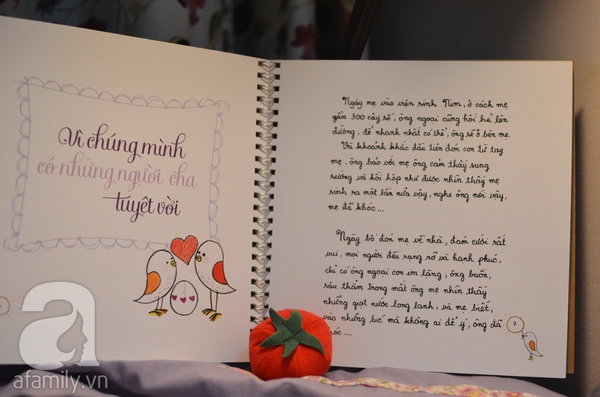 Vì chúng mình
có những người cha
tuyệt vời
Ngày mẹ vào viện sinh Nim, ở cách mẹ
gần 300 cây số, ông ngoại cũng hối hả lên
đường, để nhanh nhất có thể, ông sẽ ở bên mẹ.
Và khoảnh khắc đầu tiên đón con từ tay
mẹ, ông bảo với mẹ ông cảm thấy sung
sướng và hồi hộp như được nhìn thấy mẹ
sinh ra một lần nữa vậy, nghe ông nói vậy,
mẹ đã khóc...
Ngày bố đón mẹ về nhà, đám cưới rất
vui, mọi người đều rạng rỡ và hạnh phúc,
chỉ có ông ngoại con im lặng, ông buồn,
sâu thẳm trong mắt ông mẹ nhìn thấy
những giọt nước long lanh, và mẹ biết,
vào những lúc mà không ai để ý, ông đã
khóc...
7
a
afamily.vn